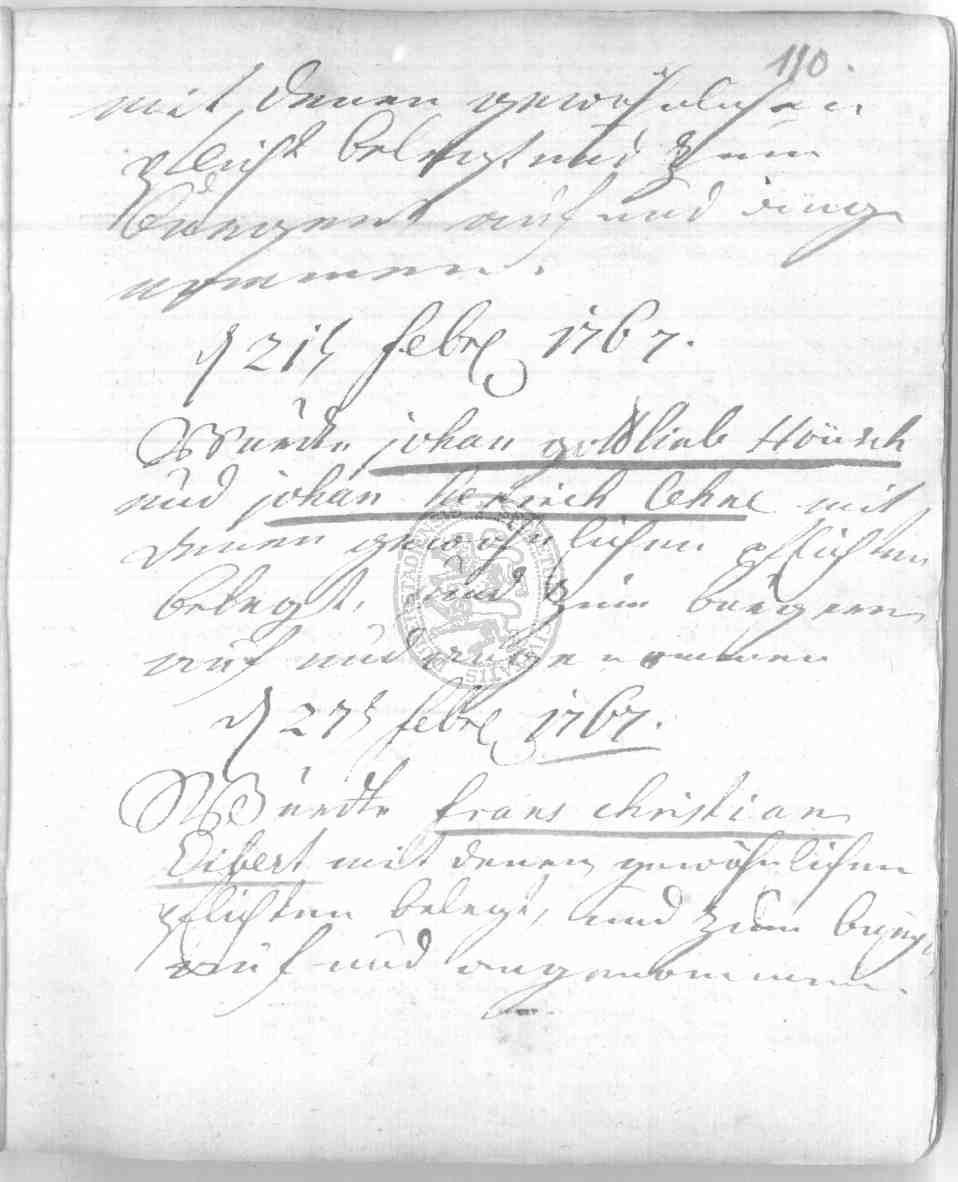 110.
mit denen gewöhnlichen
pflicht belegt und zum
Bürger auf und ange
nommen.
d 21t febr 1767.
Wurdte johan gottlieb
und johan heinrich lehne mit
denen gewöhnlichen pflichten
belegt, und zum burgern
auf und angenommen
d 27t febr 1767.
Wurdte frans christian
Eibert mit denen gewöhnlichen
pflichten belegt, und zum burger
auf und angenommen.